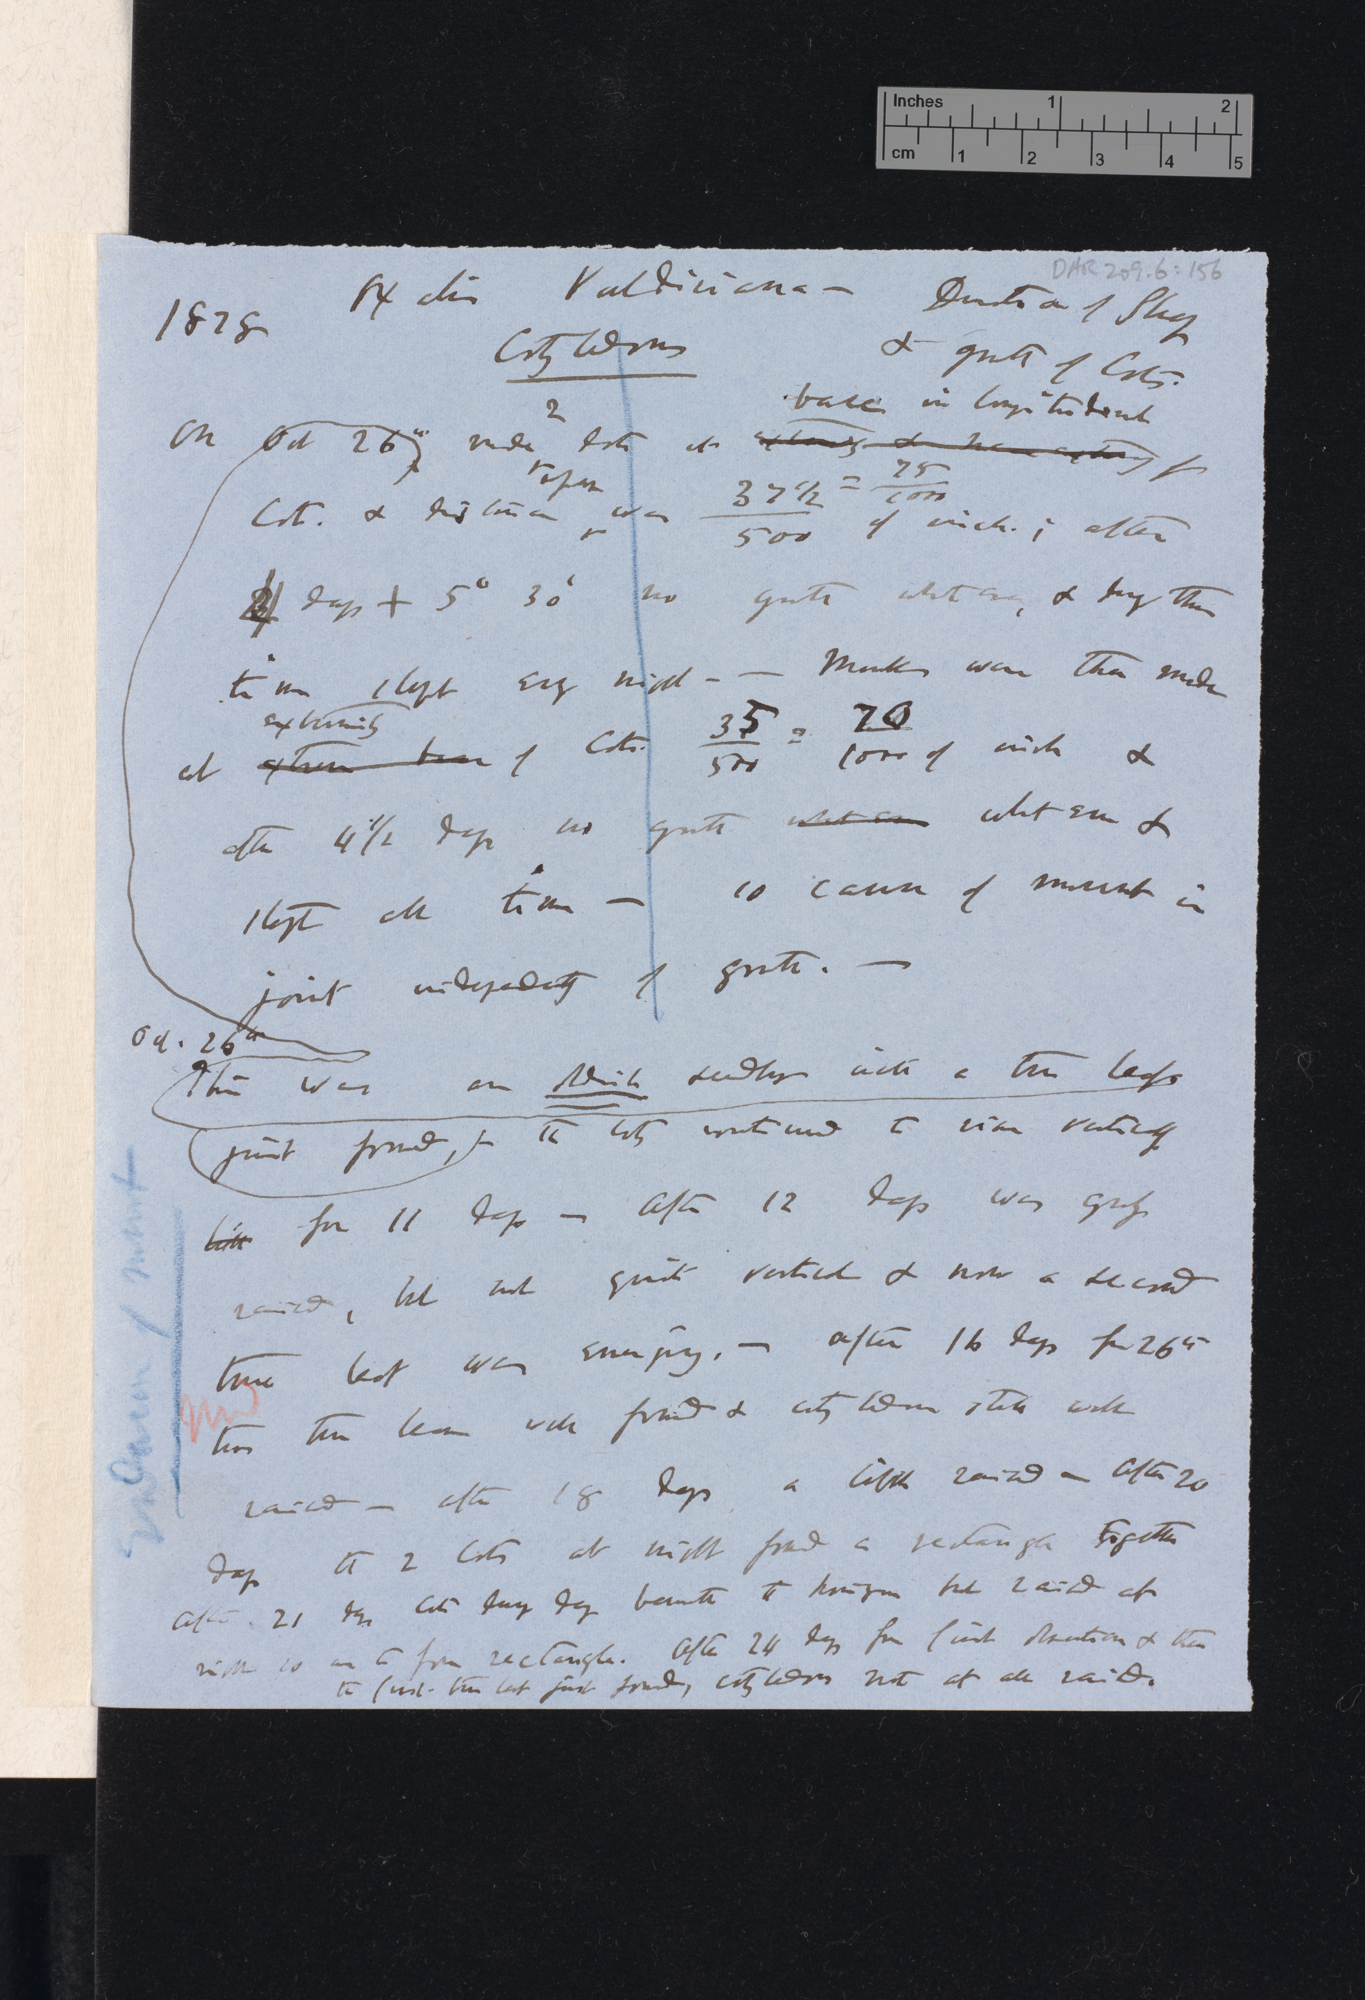 Inches 1 2
cm 1 2 3 4 5
DAR 209.6:156
1878 Oxalis Valdiviana — Duration of Sleep
Cotyledons & growth of Cots.
2 base in longitudinal
On Oct 26th made dots at
apart 37 1/2 / 500 = 75/1000
Cot. & distance was of inch; after
days + 5° 30' no growth whatever, & during this
time slept every night — Marks were then made
extremity
at of Cots. 35/500 = 70/1000 of inch &
after 4 1/2 days no growth whatever whatever &
slept all time — so cause of movement in
joint independently of growth. —
Oct. 26th
This was an oldish seedling with a true leaf
just formed, the cots continued to rise vertically
for 11 days — After 12 days was greatly
raised, but not quite vertical & now a second
true leaf was emerging. — After 16 days fr 26th
two true leaves well formed & cotyledons still well
raised — after 18 days a little raised — After 20
days the 2 Cots at night formed a rectangle together
After 21 days Cots during day beneath the horizon but raised at
night so as to form rectangle. After 24 days from first observation & then
the first true leaf just formed, cotyledons not at all raised.
movement